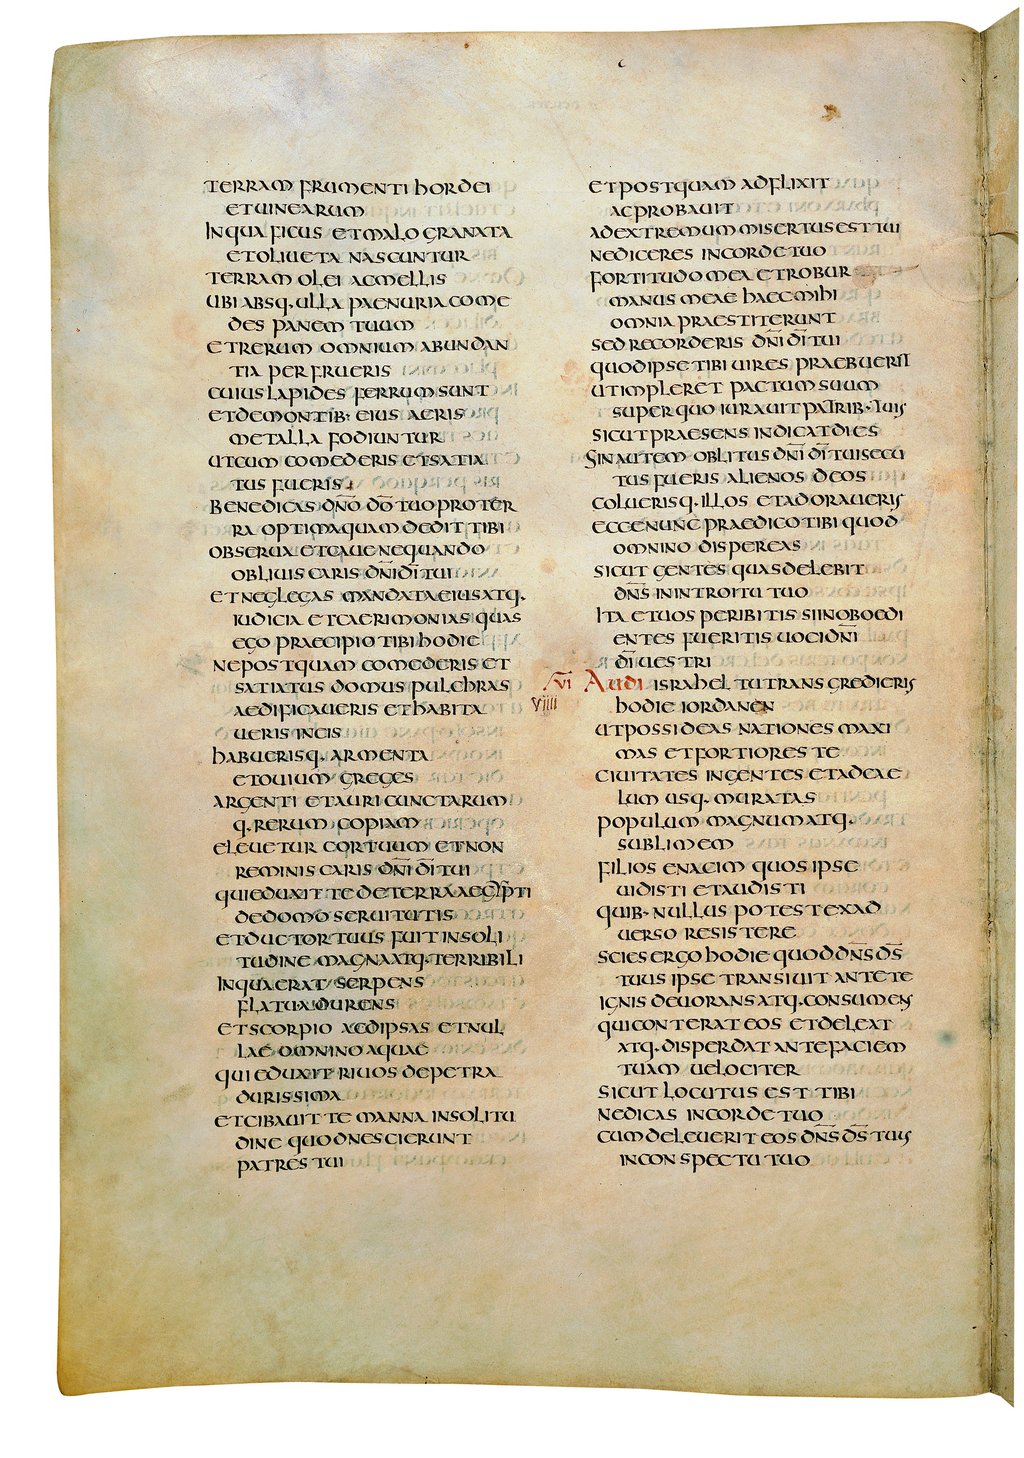 TERRAM FRUMENTI hORDEI
ETUINEARUM
INQUA FICUS ETMALOGRANATA
ETOLIUETA NASCUNTUR
TERRAM OLEI ACMELLIS
UBI ABSQ· ULLA PAENURIA COME
DES PANEM TUUM
ETRERUM OMNIUM ABUNDAN
TIA PERFRUERIS
CUIUS LAPIDES FERRUM SUNT
ETDEMONTIB· EIUS AERIS
METALLA FODIUNTUR
UTCUM COMEDERIS ETSATIA
TUS FUERIS
BENEDICAS DN̄O D̄O TUO PROTER
RA OPTIMA QUAM DEDIT TIBI
OBSERUA ETCAUE NEQUANDO
OBLIUISCARIS DN̄I D̄I TUI
ETNEGLEGAS MANDATA EIUS ATQ·
IUDICIA ETCAERIMONIAS QUAS
EGO PRAECIPIO TIBI hODIE
NEPOSTQUAM COMEDERIS ET
SATIATUS DOMUS PULChRAS
AEDIFICAUERIS EThABITA
UERIS INEIS
hABUERISQ· ARMENTA
ETOUIUM GREGES
ARGENTI ETAURI CUNCTARUM
Q· RERUM COPIAM
ELEUETUR CORTUUM ETNON
REMINISCARIS DN̄I D̄I TUI
QUIEDUXIT TE DETERRA AEGYPTI
DEDOMO SERUITUTIS
ETDUCTOR TUUS FUIT INSOLI
TUDINE MAGNA ATQ· TERRIBILI
INQUA ERAT SERPENS
FLATU ADURENS
ETSCORPIO AEDIPSAS ETNUL
LAE OMNINO AQUAE
QUI EDUXIT RIUOS DEPETRA
DURISSIMA
ETCIBAUIT TE MANNA INSOLITU
DINE QUOD NESCIERUNT
PATRES TUI
ETPOSTQUAM ADFLIXIT
ACPROBAUIT
ADEXTREMUM MISERTUS EST TUI
NEDICERES INCORDE TUO
FORTITUDO MEA ETROBUR
MANUS MEAE hAEC MIhI
OMNIA PRAESTITERUNT
SED RECORDERIS DN̄I D̄I TUI
QUOD IPSE TIBI UIRES PRAEBUERIT
UTIMPLERET PACTUM SUUM
SUPER QUO IURAUIT PATRIB· TUIS
SICUT PRAESENS INDICAT DIES
SINAUTEM OBLITUS DN̄I D̄I TUI SECU
TUS FUERIS ALIENOS DEOS
COLUERISQ· ILLOS ETADORAUERIS
ECCE NUNC PRAEDICO TIBI QUOD
OMNINO DISPEREAS
SICUT GENTES QUAS DELEBIT
DN̄S ININTROITU TUO
ITA ETUOS PERIBITIS SIINOBOEDI
ENTES FUERITIS UOCI DN̄I
D̄I UESTRI
VI AUDI ISRAhEL TU TRANSGREDIERIS
VIIII hODIE IORDANEN
UTPOSSIDEAS NATIONES MAXI
MAS ETFORTIORES TE
CIUITATES INGENTES ETADCAE
LUM USQ· MURATAS
POPULUM MAGNUM ATQ·
SUBLIMEM
FILIOS ENACIM QUOS IPSE
UIDISTI ETAUDISTI
QUIB· NULLUS POTEST EXAD
UERSO RESISTERE
SCIES ERGO hODIE QUOD DN̄S D̄S
TUUS IPSE TRANSIUIT ANTE TE
IGNIS DEUORANS ATQ· CONSUMENS
QUI CONTERAT EOS ETDELEAT
ATQ· DISPERDAT ANTE FACIEM
TUAM UELOCITER
SICUT LOCUTUS EST TIBI
NEDICAS INCORDE TUO
CUM DELEUERIT EOS DN̄S D̄S TUUS
INCONSPECTU TUO